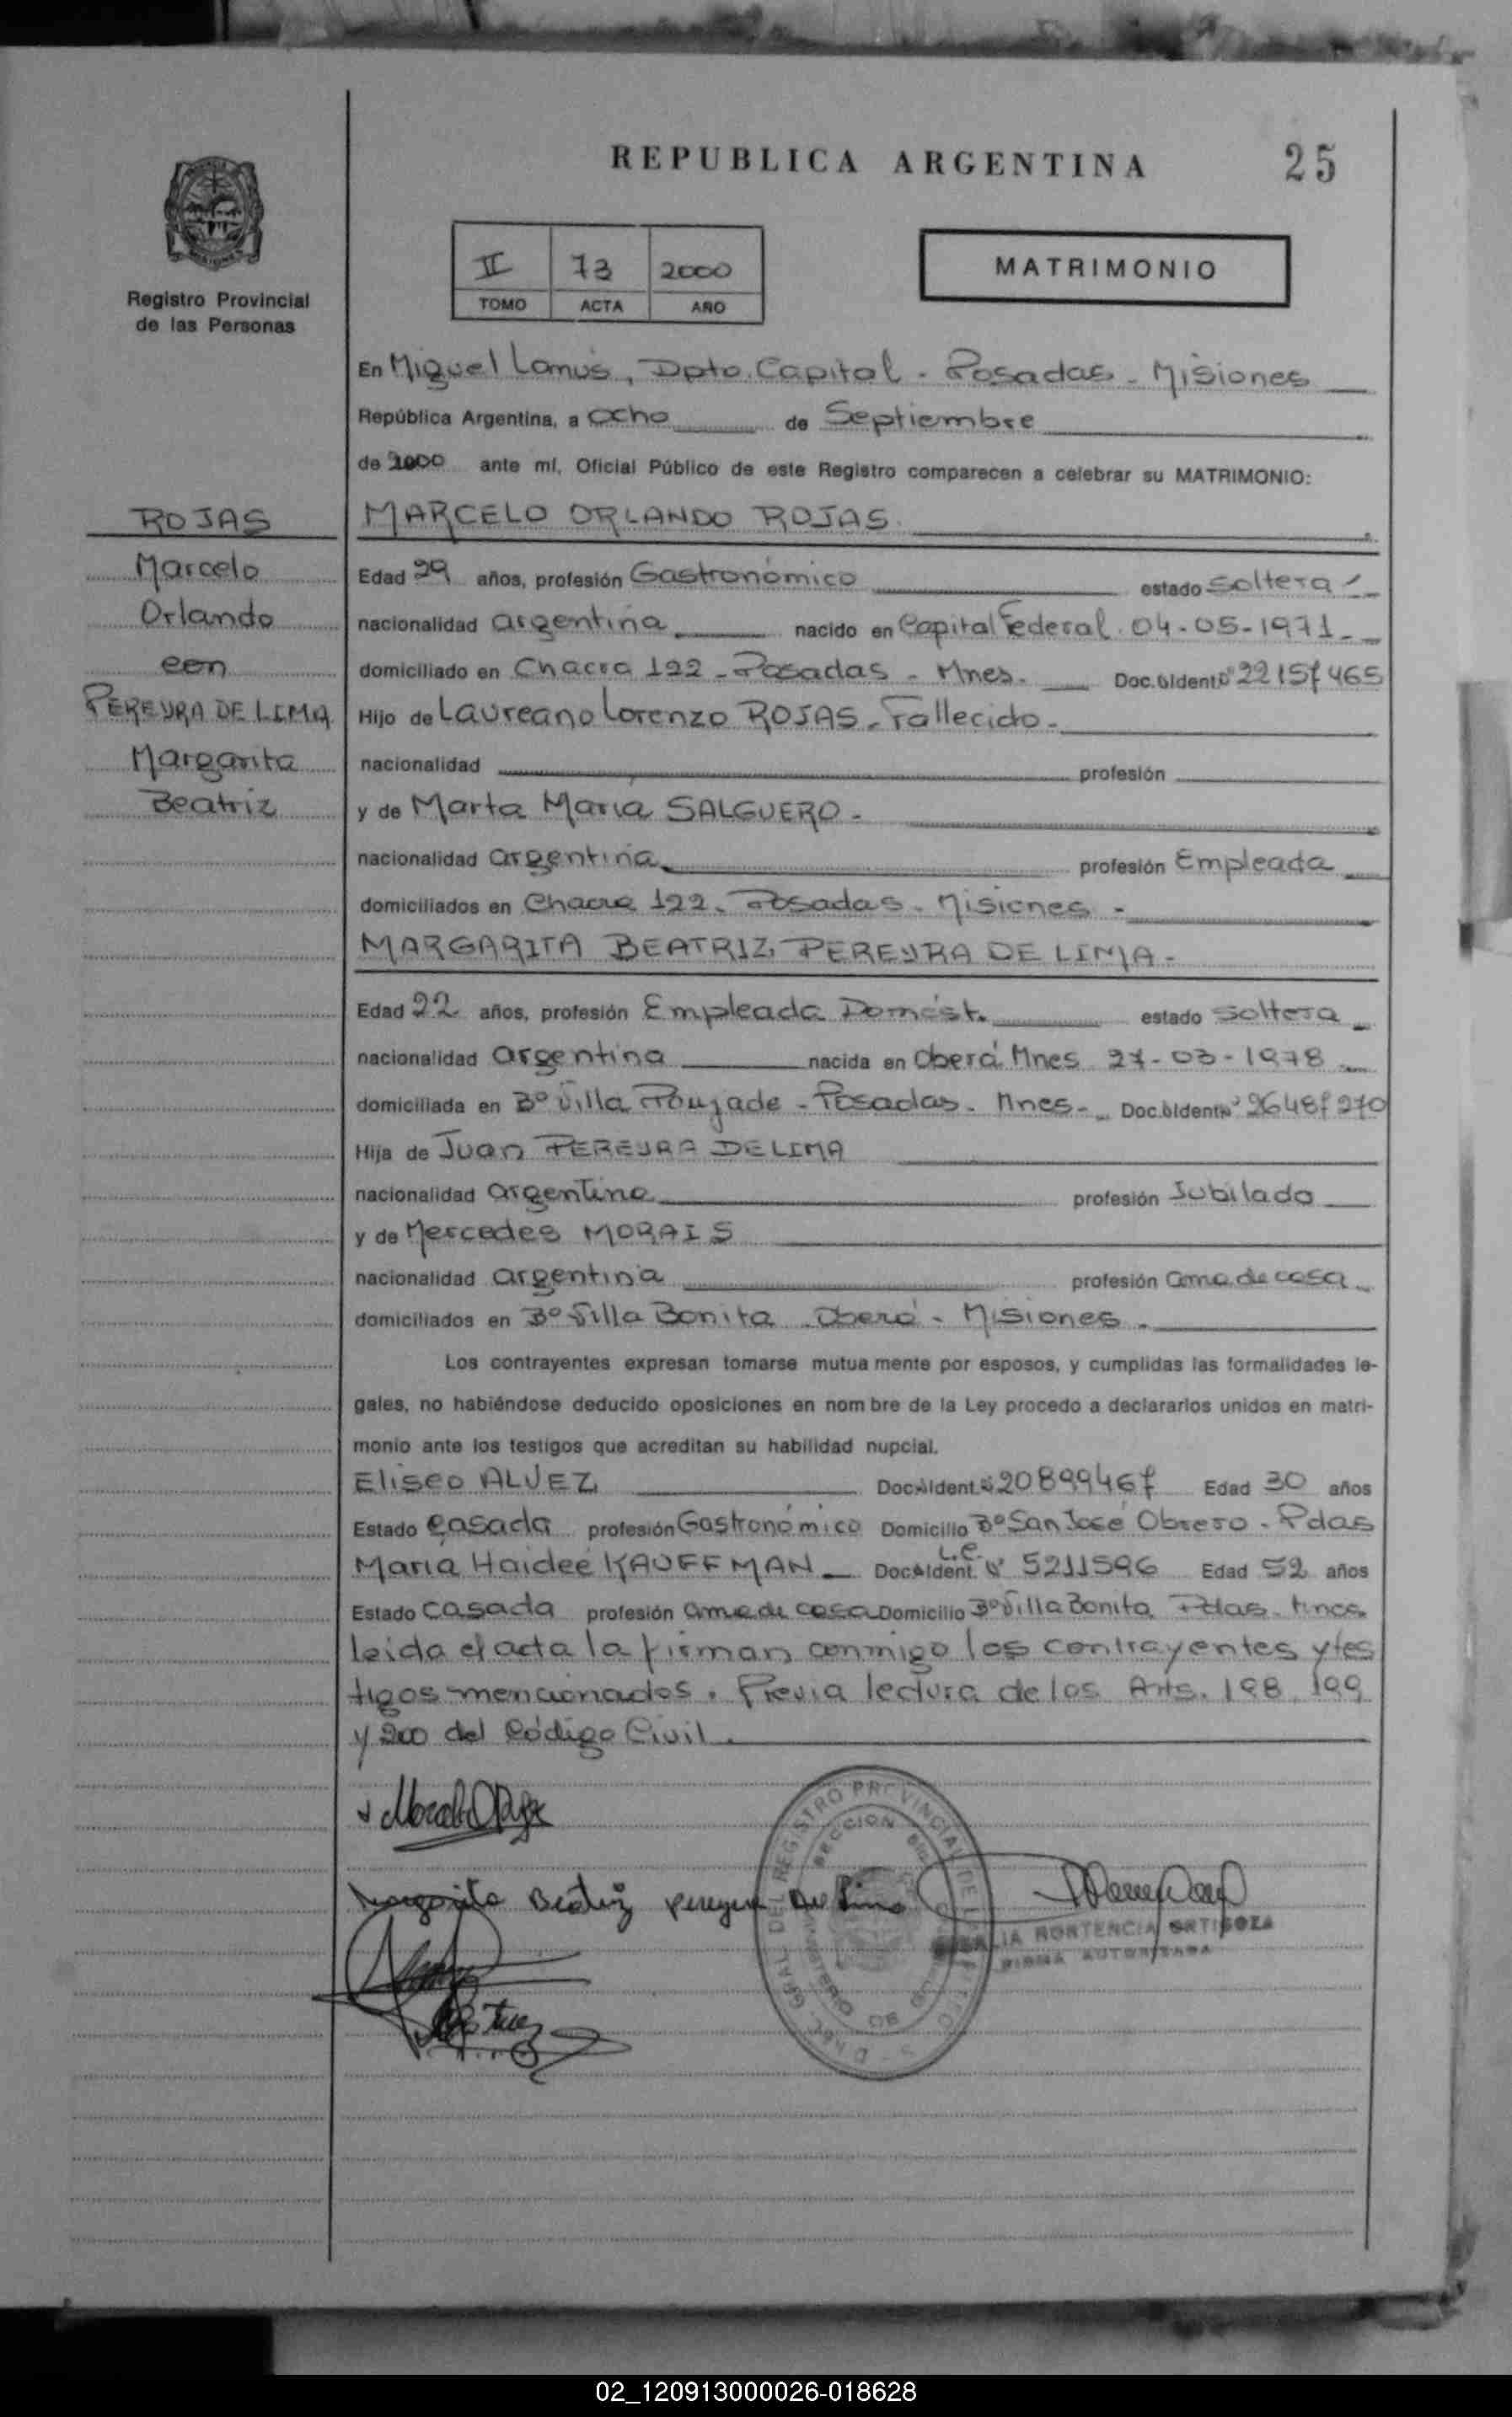 REPUBLICA ARGENTINA
25
II 73 2000
TOMO ACTA AÑO
MATRIMONIO
Registro Provincial
de las Personas
En Miguel Lanús, Dpto. Capital - Posadas - Misiones
República Argentina, a ocho de Septiembre
de 2000 ante mí, Oficial Público de este Registro comparecen a celebrar su MATRIMONIO:
ROJAS
Marcelo
Orlando
con
PEREYRA DE LIMA
Margarita
Beatriz
MARCELO ORLANDO ROJAS.
Edad 29 años, profesión Gastronómico estado soltera
nacionalidad argentina nacido en Capital Federal. 04-05-1971
domiciliado en Chacra 122 - Posadas - Mnes. Doc. Ident. Nº 22157465
Hijo de Laureano Lorenzo ROJAS - Fallecido -
nacionalidad profesión
y de Marta María SALGUERO -
nacionalidad argentina profesión Empleada
domiciliados en Chacra 122 - Posadas - Misiones -
MARGARITA BEATRIZ PEREYRA DE LIMA -
Edad 22 años, profesión Empleada Domést. estado soltera
nacionalidad argentina nacida en Oberá Mnes 27-03-1978
domiciliada en Bº Villa Poujade - Posadas - Mnes - Doc. Ident. Nº 26487270
Hija de Juan PEREYRA DE LIMA
nacionalidad argentino profesión Jubilado
y de Mercedes MORAIS
nacionalidad argentina profesión ama de casa
domiciliados en Bº Villa Bonita Oberá - Misiones.
Los contrayentes expresan tomarse mutua mente por esposos, y cumplidas las formalidades le-
gales, no habiéndose deducido oposiciones en nom bre de la Ley procedo a declararlos unidos en matri-
monio ante los testigos que acreditan su habilidad nupcial.
Eliseo ALVEZ Doc. Ident. Nº 20899467 Edad 30 años
Estado casada profesión Gastronómico Domicilio Bº San José Obrero - Pdas
María Haideé KAUFFMAN Doc. Ident. L.E. Nº 5211596 Edad 52 años
Estado casada profesión ama de casa Domicilio Bº Villa Bonita Pdas. Mnes.
leida el acta la firman conmigo los contrayentes y tes
tigos mencionados. Previa lectura de los Arts. 198 199
y 200 del Código Civil.
Margarita Beatriz pereyra De Lima
HORTENCIA ORTIGOZA
FIRMA AUTORIZADA
DEL REGISTRO PROVINCIAL DE LAS
SECCION
02_120913000026-018628